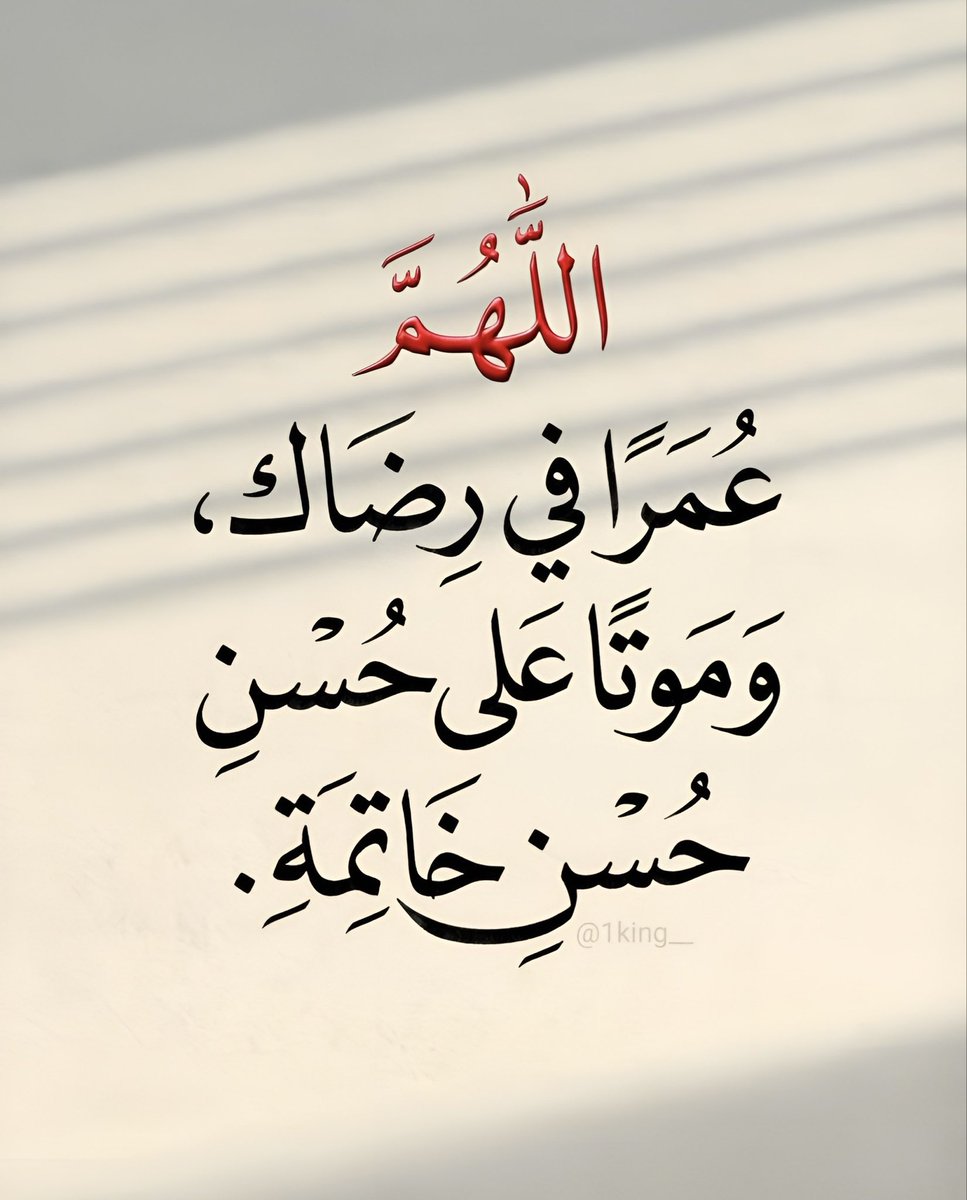 اللَّٰهُمَّ
عُمَرًا في رِضَاك،
وَمَوتًا عَلى حُسْنِ
حُسْنِ خَاتِمَةِ.
@1king__